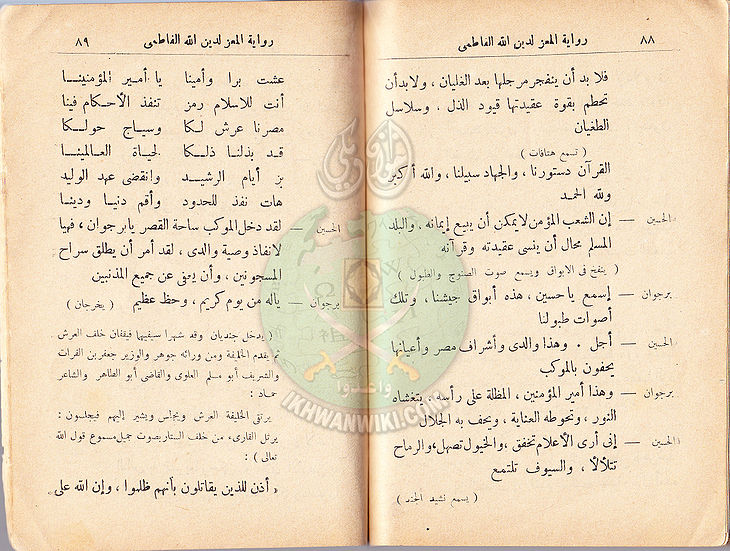 ٨٨ رواية المعز لدين الله الفاطمى
فلا بد أن ينفجر مرجلها بعد الغليان ، ولابدأن
تحطم بقوة عقيدتها قيود الذل . وسلاسل
الطغيان
( تسمع هتافات )
القرآن دستورنا ، والجهاد سبيلنا ، والله أكبر
ولله الحمد
الحسين — إن الشعب المؤمن لا يمكن أن يبيع إيمانه . والبلد
المسلم محال أن ينسى عقيدته وقرآنه
( ينفخ فى الابواق ويسمع صوت الصنوج والطبول )
برجوان — إسمع ياحسين ، هذه أبواق جيشنا ، وتلك
أصوات طبولنا
الحسين — أجل . وهذا والدى وأشراف مصر وأعيانها
يحفون بالموكب
برجوان — وهذا أمير المؤمنين . المظلة على رأسه . يتغشاه
النور ، وتحوطه العناية ، ويحف به الجلال
الحسين — إنى أرى الأعلام تخفق ، والخيول تصهل ، والرماح
تتلألأ ، والسيوف تلتمع
( يسمع نشيد الجند )
رواية المعز لدين الله الفاطمى ٨٩
عشت برا وأمينا يا أمير المؤمنينا
أنت للاسلام رمز تنفذ الأحكام فينا
مصرنا عرش لكا وسياج حولكا
قد بذلنا ذلكا لحياة العالمينا
بز أيام الرشيد وانقضى عهد الوليد
هات نفذ للحدود وأقم دنيا ودينا
الحسين — لقد دخل الموكب ساحة القصر يابرجوان ، فهيا
لانفاذ وصية والدى ، لقد أمر أن يطلق سراح
المسجونين ، وأن يعفى عن جميع المذنبين
برجوان — ياله من يوم كريم ، وحظ عظيم ( يخرجان )
( يدخل جنديان وقد شهرا سيفيهما فيقفان خلف العرش
ثم يقدم الخليفة ومن ورائه جوهر والوزير جعفر بن الفرات
والشريف أبو مسلم العلوى والقاضى أبو الطاهر والشاعر
حماد :
يرتقى الخليفة العرش ويجلس ويشير إليهم فيجلسون :
يرتل القارىء من خلف الستار بصوت جميل مسموع قول الله
تعالى ) :
« أذن للذين يقاتلون بأنهم ظلموا ، وإن الله على
واعدوا
IKHWANWIKI.COM